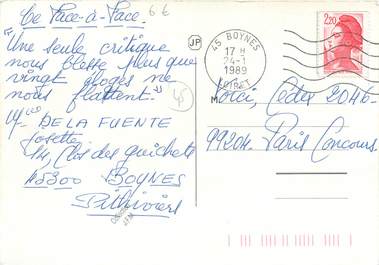 Le Face-à-Face. 66
"Une seule critique
nous blesse plus que
vingt éloges ne
nous flattent."
Mme DE LA FUENTE
Josette
14, Clos des guichets
45300 BOYNES
Pithiviers
45
JP
45 BOYNES
17 H
24-1
1989
LOIRET
2,20
Loisi, Cédex 2046-
99204. Paris Concours.